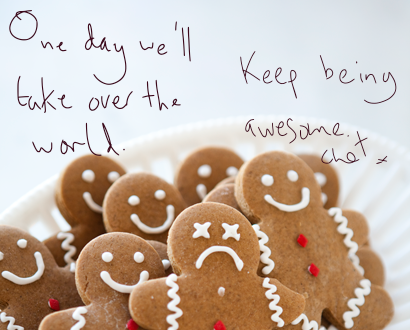 One day we'll
take over the
world.
Keep being
awesome.
chat x